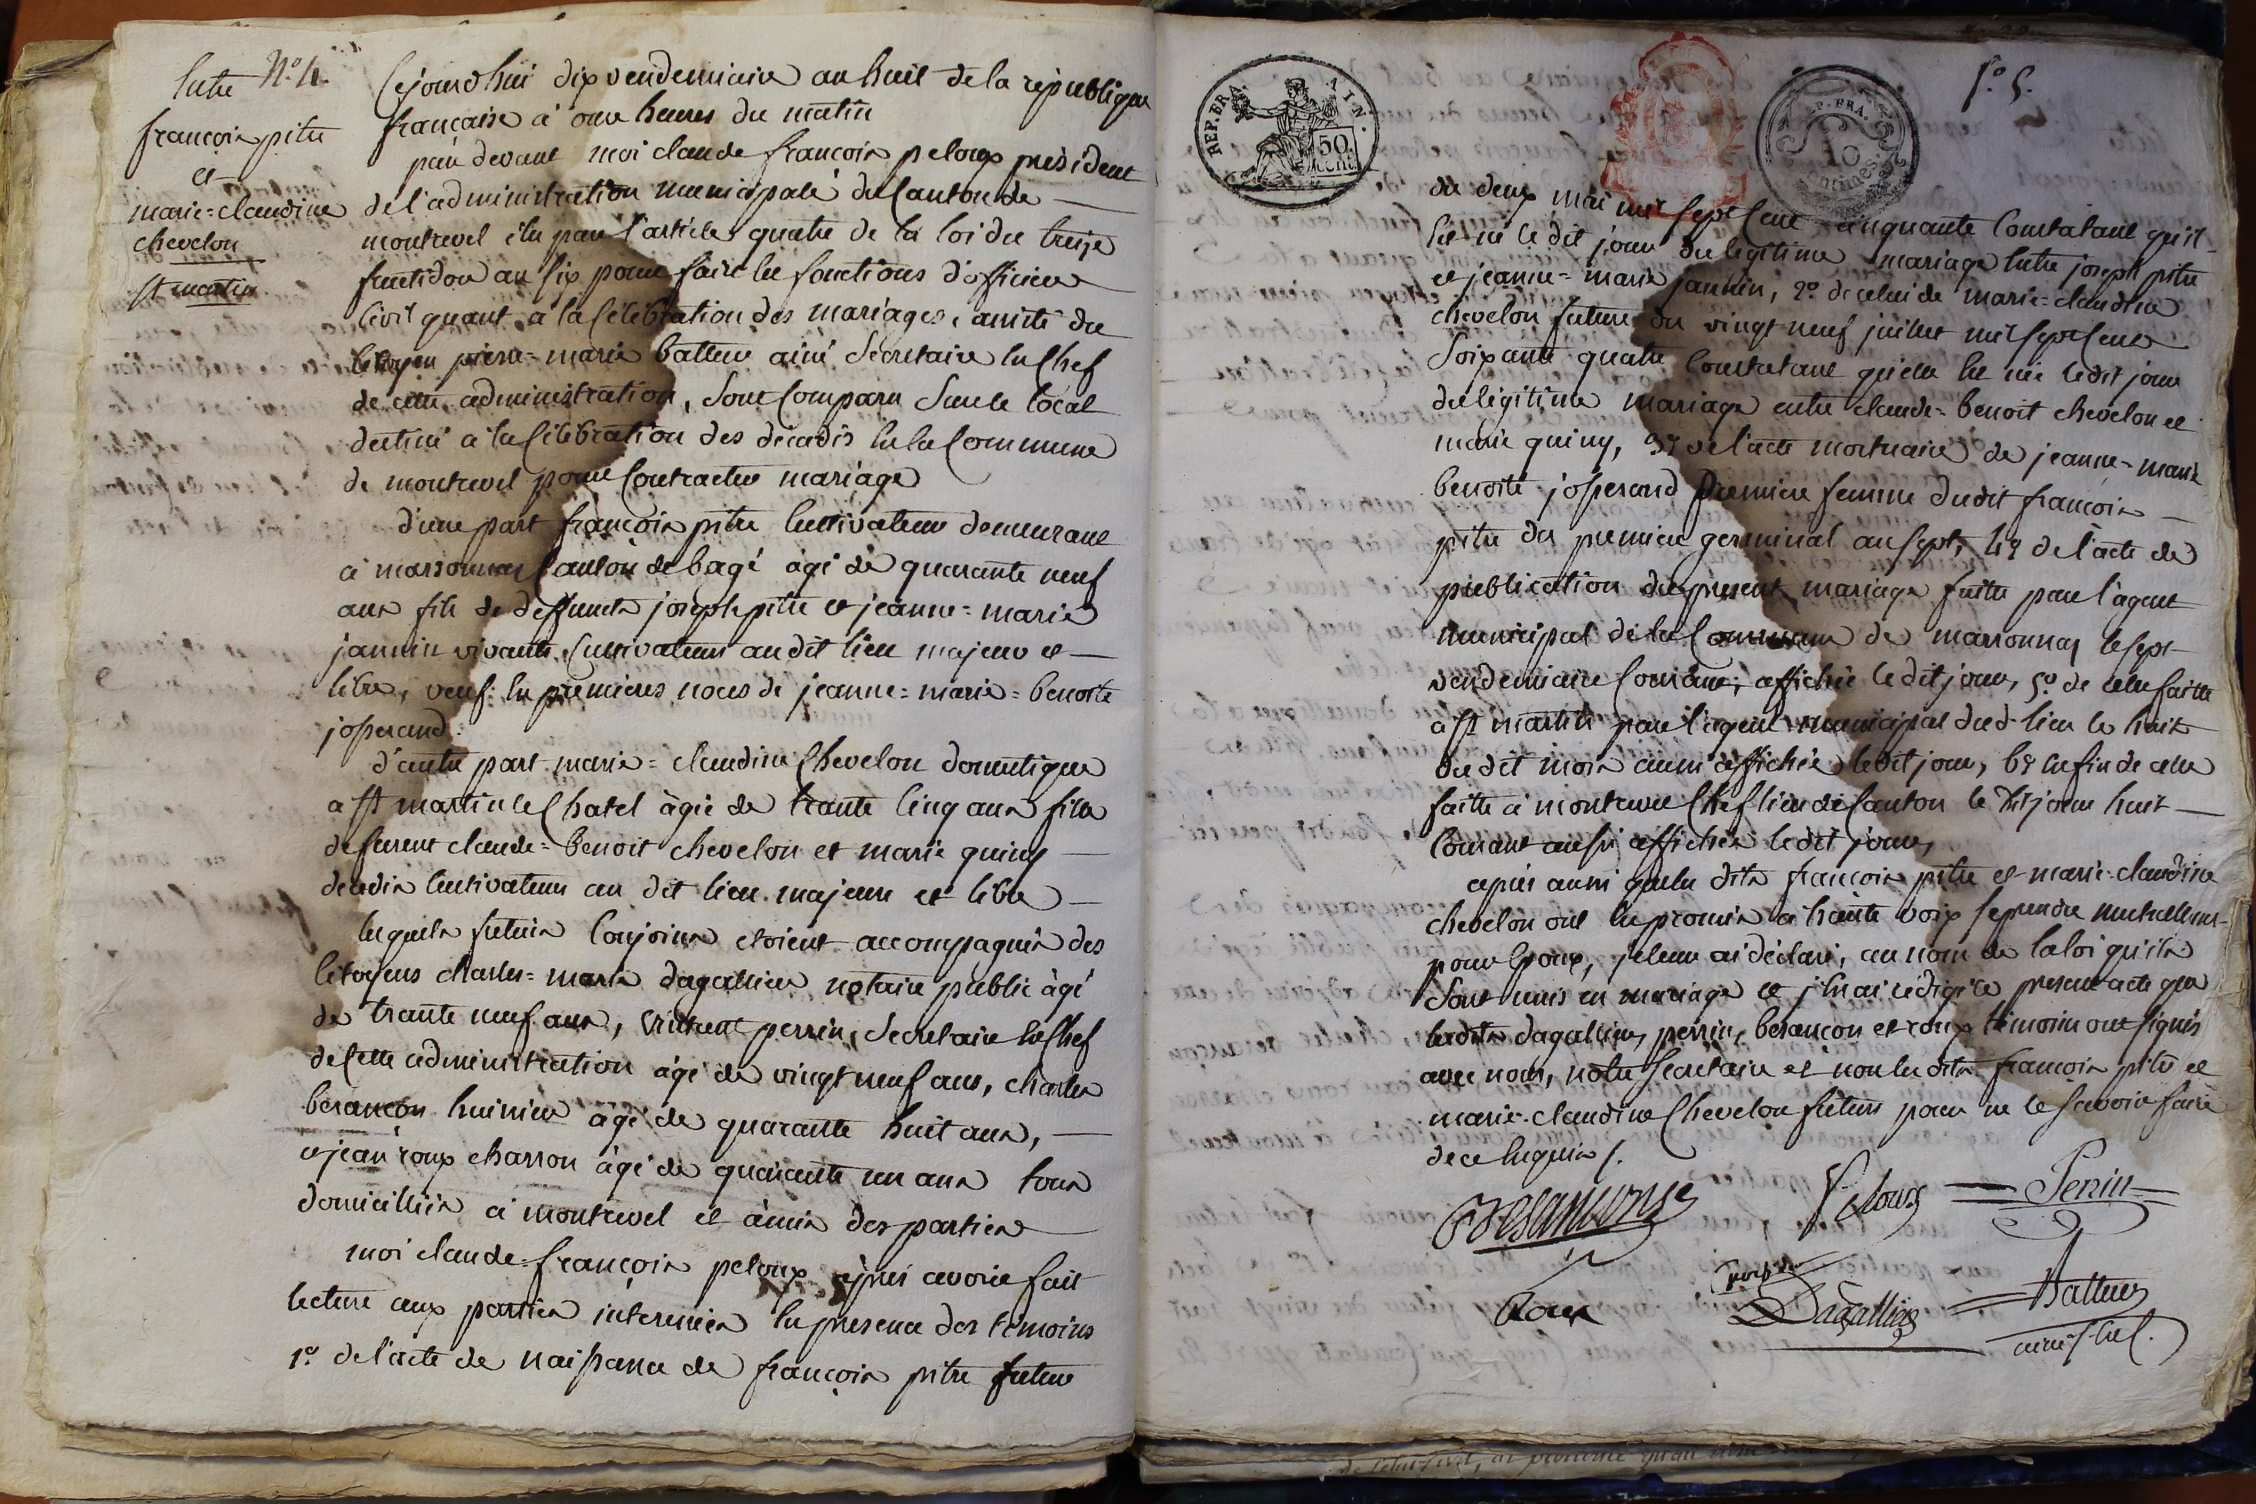 N.º 4.
Entre
françois pitre
et
marie=claudine
chevelon
St martin
Cejourd'hui dix vendemiaire an huit de la république
française à onze heures du matin
par devant moi claude françois peloux président
de l'administration municipale du Canton de
montrevel élu par l'article quatre de la loi du treize
fructidor an six pour faire les fonctions d'officier
Civil quant à la Célébration des mariages, assisté du
Citoyen pierre=marie batteur ainé Secretaire en Chef
de cette administration, Sont Comparu dans le local
destiné à la Célébration des décadis en la Commune
de montrevel pour Contracter mariage
d'une part françois pitre Cultivateur demeurant
à marsonnas Canton de bagé agé de quarante neuf
ans fils de deffuncts joseph pitre et jeanne=marie
jannin vivants Cultivateurs audit lieu majeur et
libre, veuf en premières noces de jeanne=marie=benoite
josserand.
d'autre part marie=claudine Chevelon domestique
a St martin le Chatel àgée de trante Cinq ans fille
de furent claude=benoit chevelon et marie quiny
decedés Cultivateurs au dit lieu majeure et libre
lesquels futurs Conjoins etoient accompagnés des
Citoyens charles=marie dagallier notaire public àgé
de trante neuf ans, vincent perrin, Secretaire en Chef
de Cette administration àgé de vingt neuf ans, charles
besançon huissier àgé de quarante huit ans,
et jean roux charron àgé de quarante un ans tous
domiciliés à montrevel et amis des parties
moi claude=françois peloux après avoir fait
lecture aux parties interessées en presence des témoins
1º de l'acte de naissance de françois pitre futur
REP. FRA. AIN.
50 CENT.
REP. FRA.
10
Centimes
fº 5.
du deux mai mil sept Cent cinquante Constatant qu'il
est né le dit jour du légitime mariage entre joseph pitre
et jeanne=marie jannin, 2º de celui de marie=claudine
chevelon future du vingt neuf juillet mil sept Cent
Soixante quatre Constatant qu'elle est née ledit jour
du légitime mariage entre claude=benoit chevelon et
marie quiny, 3º de l'acte mortuaire de jeanne=marie
benoite josserand premiere femme dudit françois
pitre du premier germinal an sept, 4º de l'acte de
publication du présent mariage faitte par l'agent
municipal de la Commune de marsonnas le sept
vendemiaire Courant, affichée le dit jour, 5º de celle faitte
a St martin par l'agent municipal dud. lieu le huit
du dit mois aussi affichée ledit jour, 6º enfin de celle
faitte à montrevel Chef lieu de Canton le dit jour huit
Courant aussi affichée ledit jour,
après aussi que les dits françois pitre et marie-claudine
chevelon ont eu promis à haute voix se prendre mutuellement
pour Epoux, je leur ai déclaré, au nom de la loi qu'ils
Sont unis en mariage et j'en ai rédigé le present acte que
lesdits dagallier, perrin, besançon et roux témoins ont signés
avec nous, notre Secretaire et non les dits françois pitre et
marie-claudine Chevelon futurs pour ne le Savoir faire
de ce enquis /.
Besançon
Peloux
Perrin
Roux
Dagallier
Batteur
ainé S. Chef.